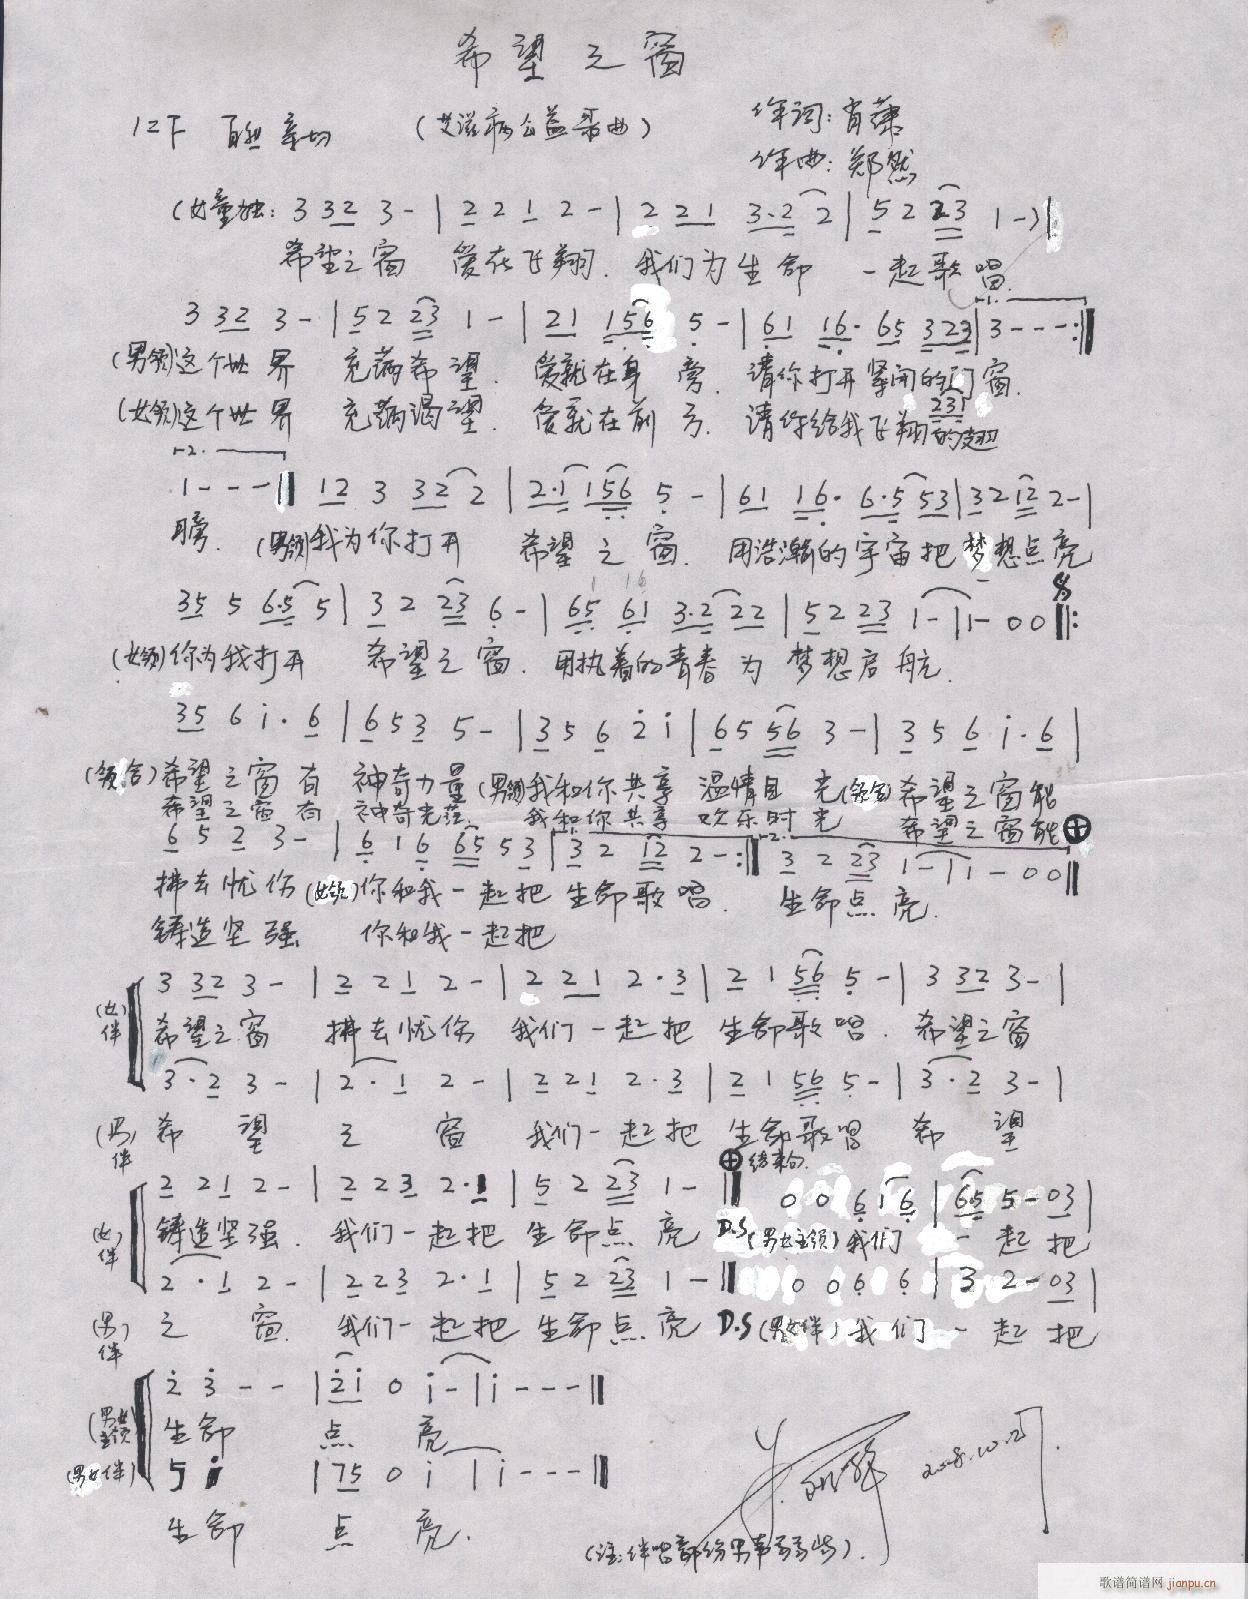 希望之窗
(艾滋病公益歌曲)
作词:肖潇
作曲:郑然
(女童独: 3 32 3 - | 2 2 1 2 - | 2 2 1 3·2 2 | 5 2 23 1 - )
希望之窗 爱在飞翔. 我们为生命 一起歌唱.
3 32 3 - | 5 2 23 1 - | 21 156 5 - | 61 16· 65 323 | 3 - - - :||
(男领)这个世界 充满希望. 爱就在身旁. 请你打开紧闭的门窗.
(女领)这个世界 充满渴望. 爱就在前方. 请你给我飞翔的翅
231
1 - - - || 12 3 32 2 | 2·1 156 5 - | 61 16· 6·5 53 | 3 2 12 2 - |
膀. (男领)我为你打开 希望之窗. 用浩瀚的宇宙把梦想点亮
35 5 6·5 5 | 3 2 23 6 - | 65 61 3·2 22 | 5 2 23 1 - | 1 - 0 0 ||:
(女领)你为我打开 希望之窗. 用执着的青春为梦想启航.
35 6 i· 6 | 6 5 3 5 - | 3 5 6 2 i | 6 5 56 3 - | 3 5 6 i· 6 |
(领合)希望之窗有神奇力量 (男领)我和你共享 温情目光 (领合)希望之窗能
希望之窗有神奇光芒. 我和你共享 欢乐时光 希望之窗能
6 5 2 3 - | 6 1 6 65 5 3 | 3 2 12 2 - :|| 3 2 23 1 - | 1 - 0 0 ||
拂去忧伤 (女领)你和我一起把生命歌唱. 生命点亮.
铸造坚强 你和我一起把
3 32 3 - | 2 2 1 2 - | 2 2 1 2· 3 | 2 1 56 5 - | 3 32 3 - |
(女)伴 希望之窗 拂去忧伤 我们一起把 生命歌唱. 希望之窗
3·2 3 - | 2·1 2 - | 2 2 1 2· 3 | 2 1 56 5 - | 3·2 3 - |
(男)伴 希望之窗 我们一起把 生命歌唱 希望
结束句.
2 2 1 2 - | 2 2 3 2·1 | 5 2 23 1 - || 0 0 6 16 | 65 5 - 03 |
(女)伴 铸造坚强. 我们一起把 生命点亮 D.S (男女主领)我们一起把
2·1 2 - | 2 2 3 2·1 | 5 2 23 1 - || 0 0 6 6 | 3 2 - 03 |
(男)伴 之窗. 我们一起把 生命点亮 D.S (男女伴)我们一起把
2 3 - - | 2i 0 i - | i - - - ||
(男女主领) 生命 点 亮
5 i | 75 0 i | i - - - ||
(男女伴) 生命 点 亮.
(注:伴唱部份男声高高些).
歌谱简谱网 jianpu.cn